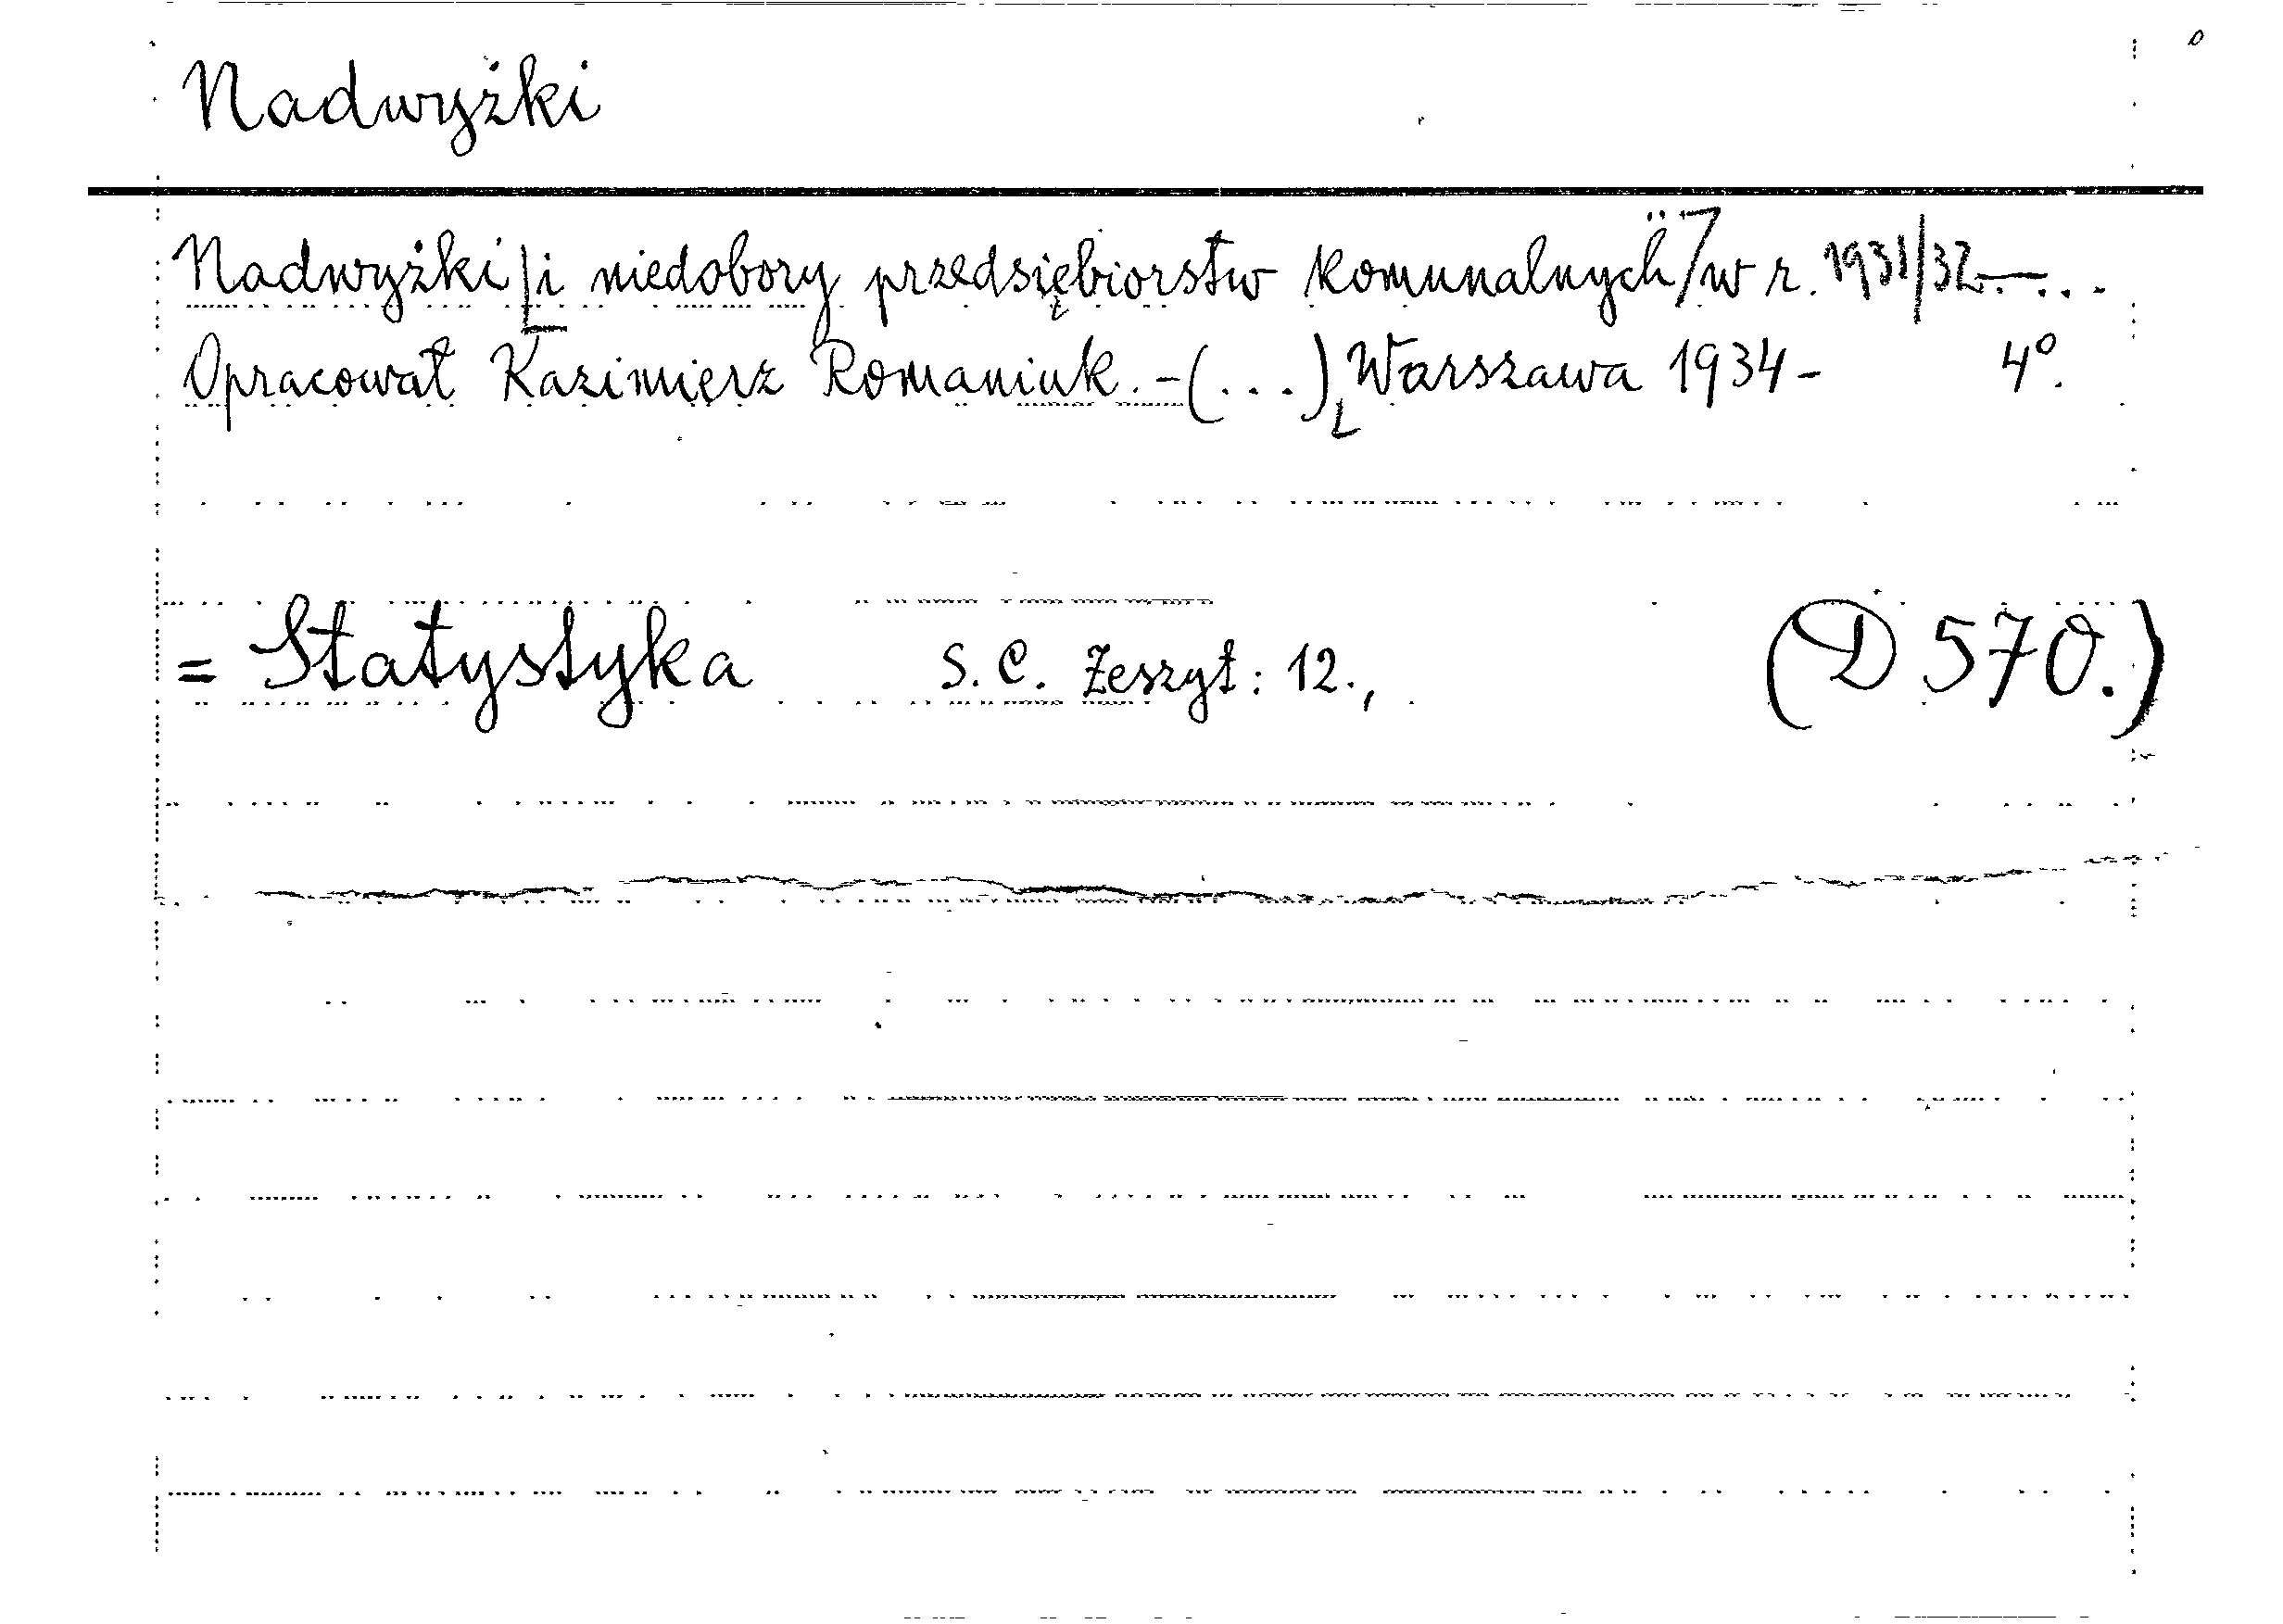 Nadwyżki
Nadwyżki i niedobory przedsiębiorstw komunalnych w r. 1931/32.—...
Opracował Kazimierz Romaniuk.-(...) Warszawa 1934- 4º.
= Statystyka S. C. Zeszyt: 12., (D 570.)